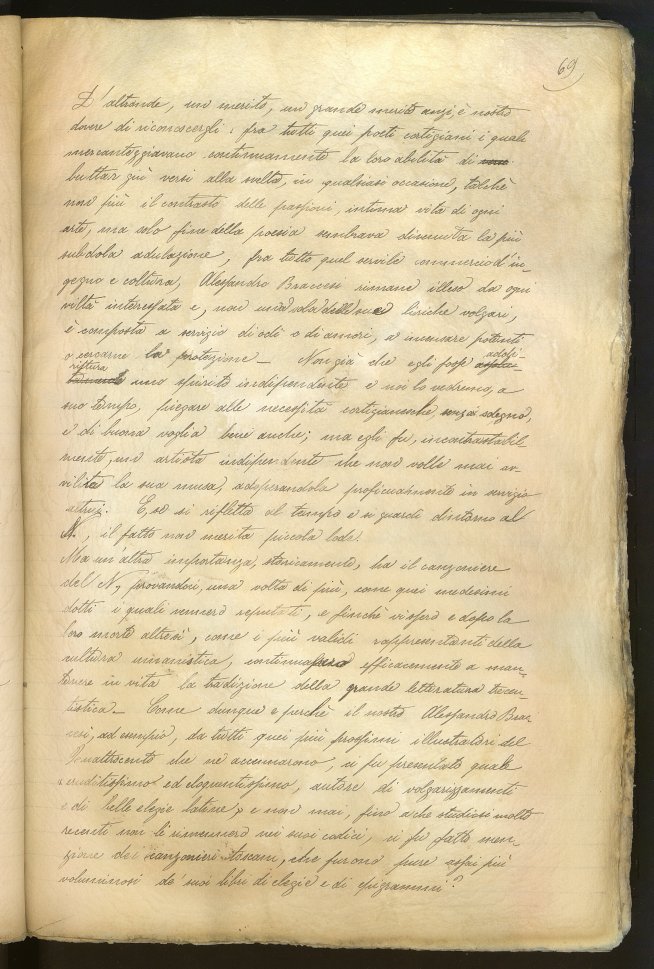 69
D'altronde, un merito, un grande merito anzi, è nostro
dovere di riconoscergli: fra tutti quei poeti cortigiani i quali
mercanteggiavano continuamente la loro abilità di
buttar giù versi alla svelta, in qualsiasi occasione, talchè
non più il contrasto delle passioni, intima vita di ogni
arte, ma solo fine della poesia sembrava divenuta la più
subdola adulazione, fra tutto quel servile commercio d'in-
gegno e coltura, Alessandro Braccesi rimane illeso da ogni
viltà interessata e, non una sola delle sue liriche volgari,
è composta a servizio di odî o di amori, a incensare potenti
o cercarne la protezione — Non già che egli fosse addi-
rittura uno spirito indipendente e noi lo vedremo, a
suo tempo, piegare alle necessità cortigianesche senza sdegno,
e di buona voglia bene anche; ma egli fu, incontrastabile
merito, un artista indipendente che non volle mai av-
vilire la sua musa, adoperandola proficuamente in servizio
altrui. E, se si rifletta al tempo e si guardi dintorno al
N., il fatto non merita piccola lode.
Ma un'altra importanza, storicamente, ha il canzoniere
del N, provandoci, una volta di più, come quei medesimi
dotti i quali vennero reputati, e finchè vissero e dopo la
loro morte altresì, come i più validi rappresentanti della
cultura umanistica, continuassero efficacemente a man-
tenere in vita la tradizione della grande letteratura trecen-
tistica — Come dunque e perchè il nostro Alessandro Brac-
cesi, ad esempio, da tutti quei più prossimi illustratori del
Quattrocento che ne accennarono, ci fu presentato quale
eruditissimo ed eloquentissimo, autore di volgarizzamenti
e di belle elegie latine, e non mai, fino a che studiosi molto
recenti non li rinvennero nei suoi codici, ci fu fatto men-
zione dei canzonieri toscani, che furono pure assai più
voluminosi de' suoi libri di elegie e di epigrammi?